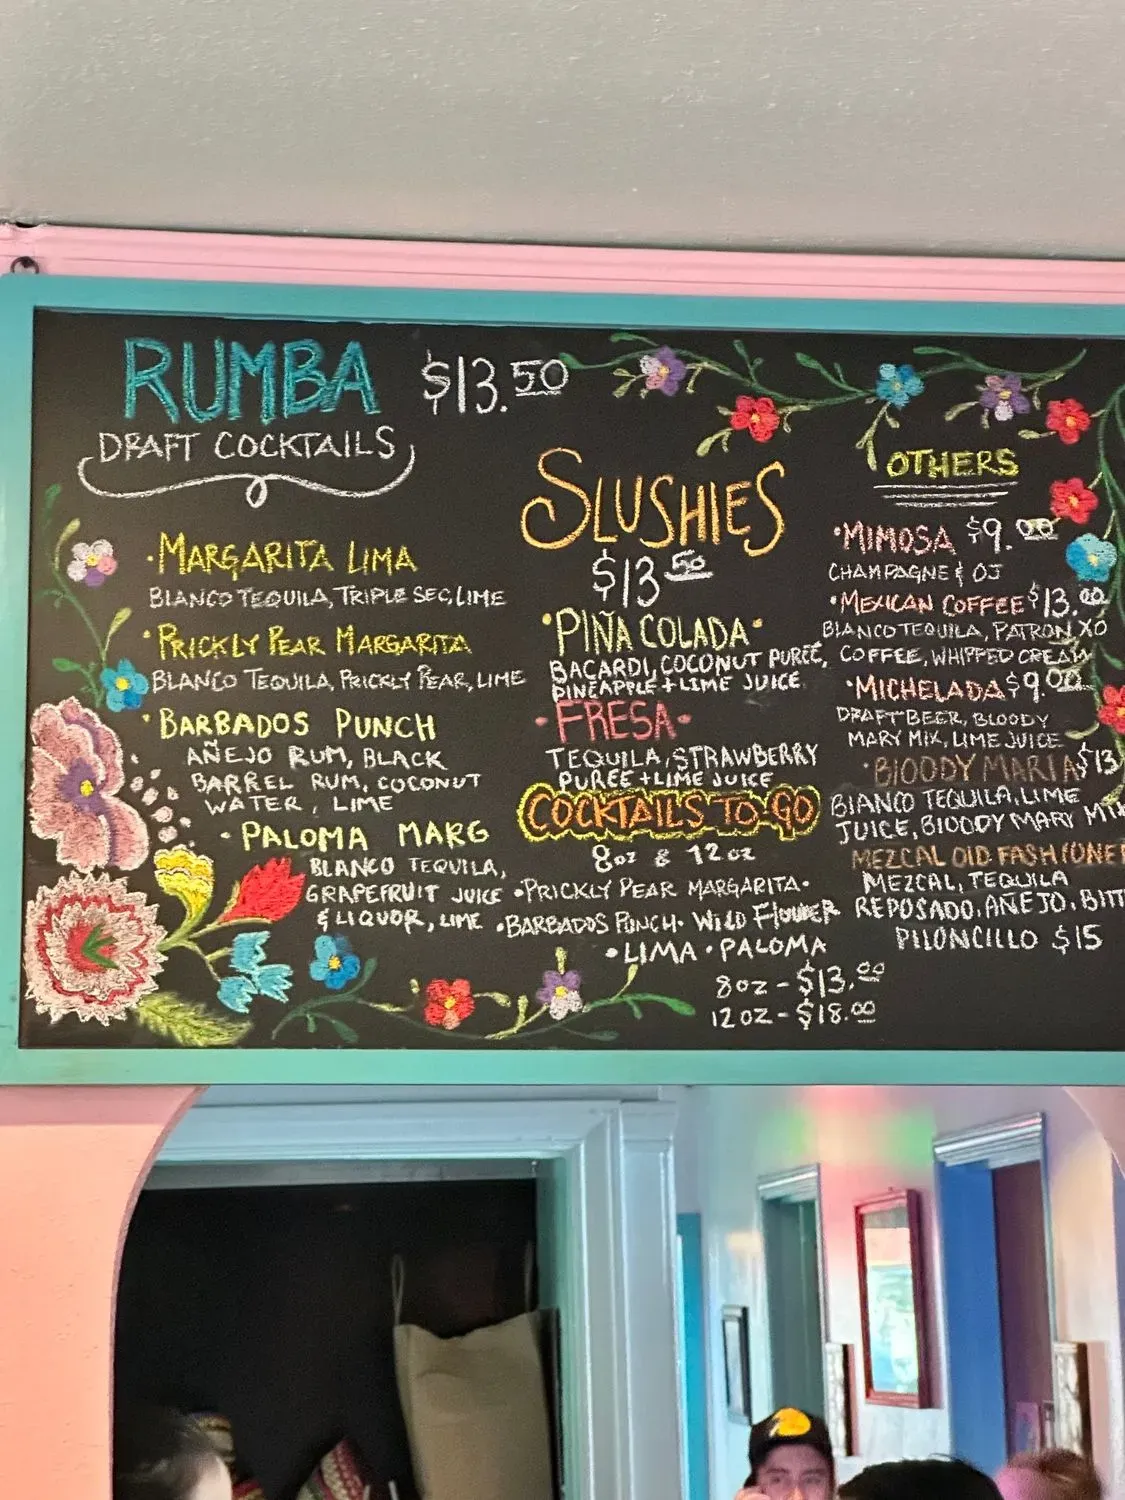 RUMBA $13.50
DRAFT COCKTAILS
·MARGARITA LIMA
BLANCO TEQUILA, TRIPLE SEC, LIME
·PRICKLY PEAR MARGARITA
BLANCO TEQUILA, PRICKLY PEAR, LIME
·BARBADOS PUNCH
AÑEJO RUM, BLACK
BARREL RUM, COCONUT
WATER, LIME
·PALOMA MARG
BLANCO TEQUILA,
GRAPEFRUIT JUICE
& LIQUOR, LIME
SLUSHIES
$13.50
·PIÑA COLADA·
BACARDI, COCONUT PUREÉ,
PINEAPPLE + LIME JUICE
·FRESA·
TEQUILA, STRAWBERRY
PUREE + LIME JUICE
COCKTAILS TO GO
8oz & 12oz
·PRICKLY PEAR MARGARITA·
·BARBADOS PUNCH· WILD FLOWER
·LIMA·PALOMA
8oz - $13.00
12oz - $18.00
OTHERS
·MIMOSA $9.00
CHAMPAGNE & OJ
·MEXICAN COFFEE $13.00
BLANCO TEQUILA, PATRON XO
COFFEE, WHIPPED CREAM
·MICHELADA $9.00
DRAFT BEER, BLOODY
MARY MIX, LIME JUICE
·BLOODY MARIA $13
BLANCO TEQUILA, LIME
JUICE, BLOODY MARY
MEZCAL OLD FASHIONE
MEZCAL, TEQUILA
REPOSADO, AÑEJO, BITT
PILONCILLO $15